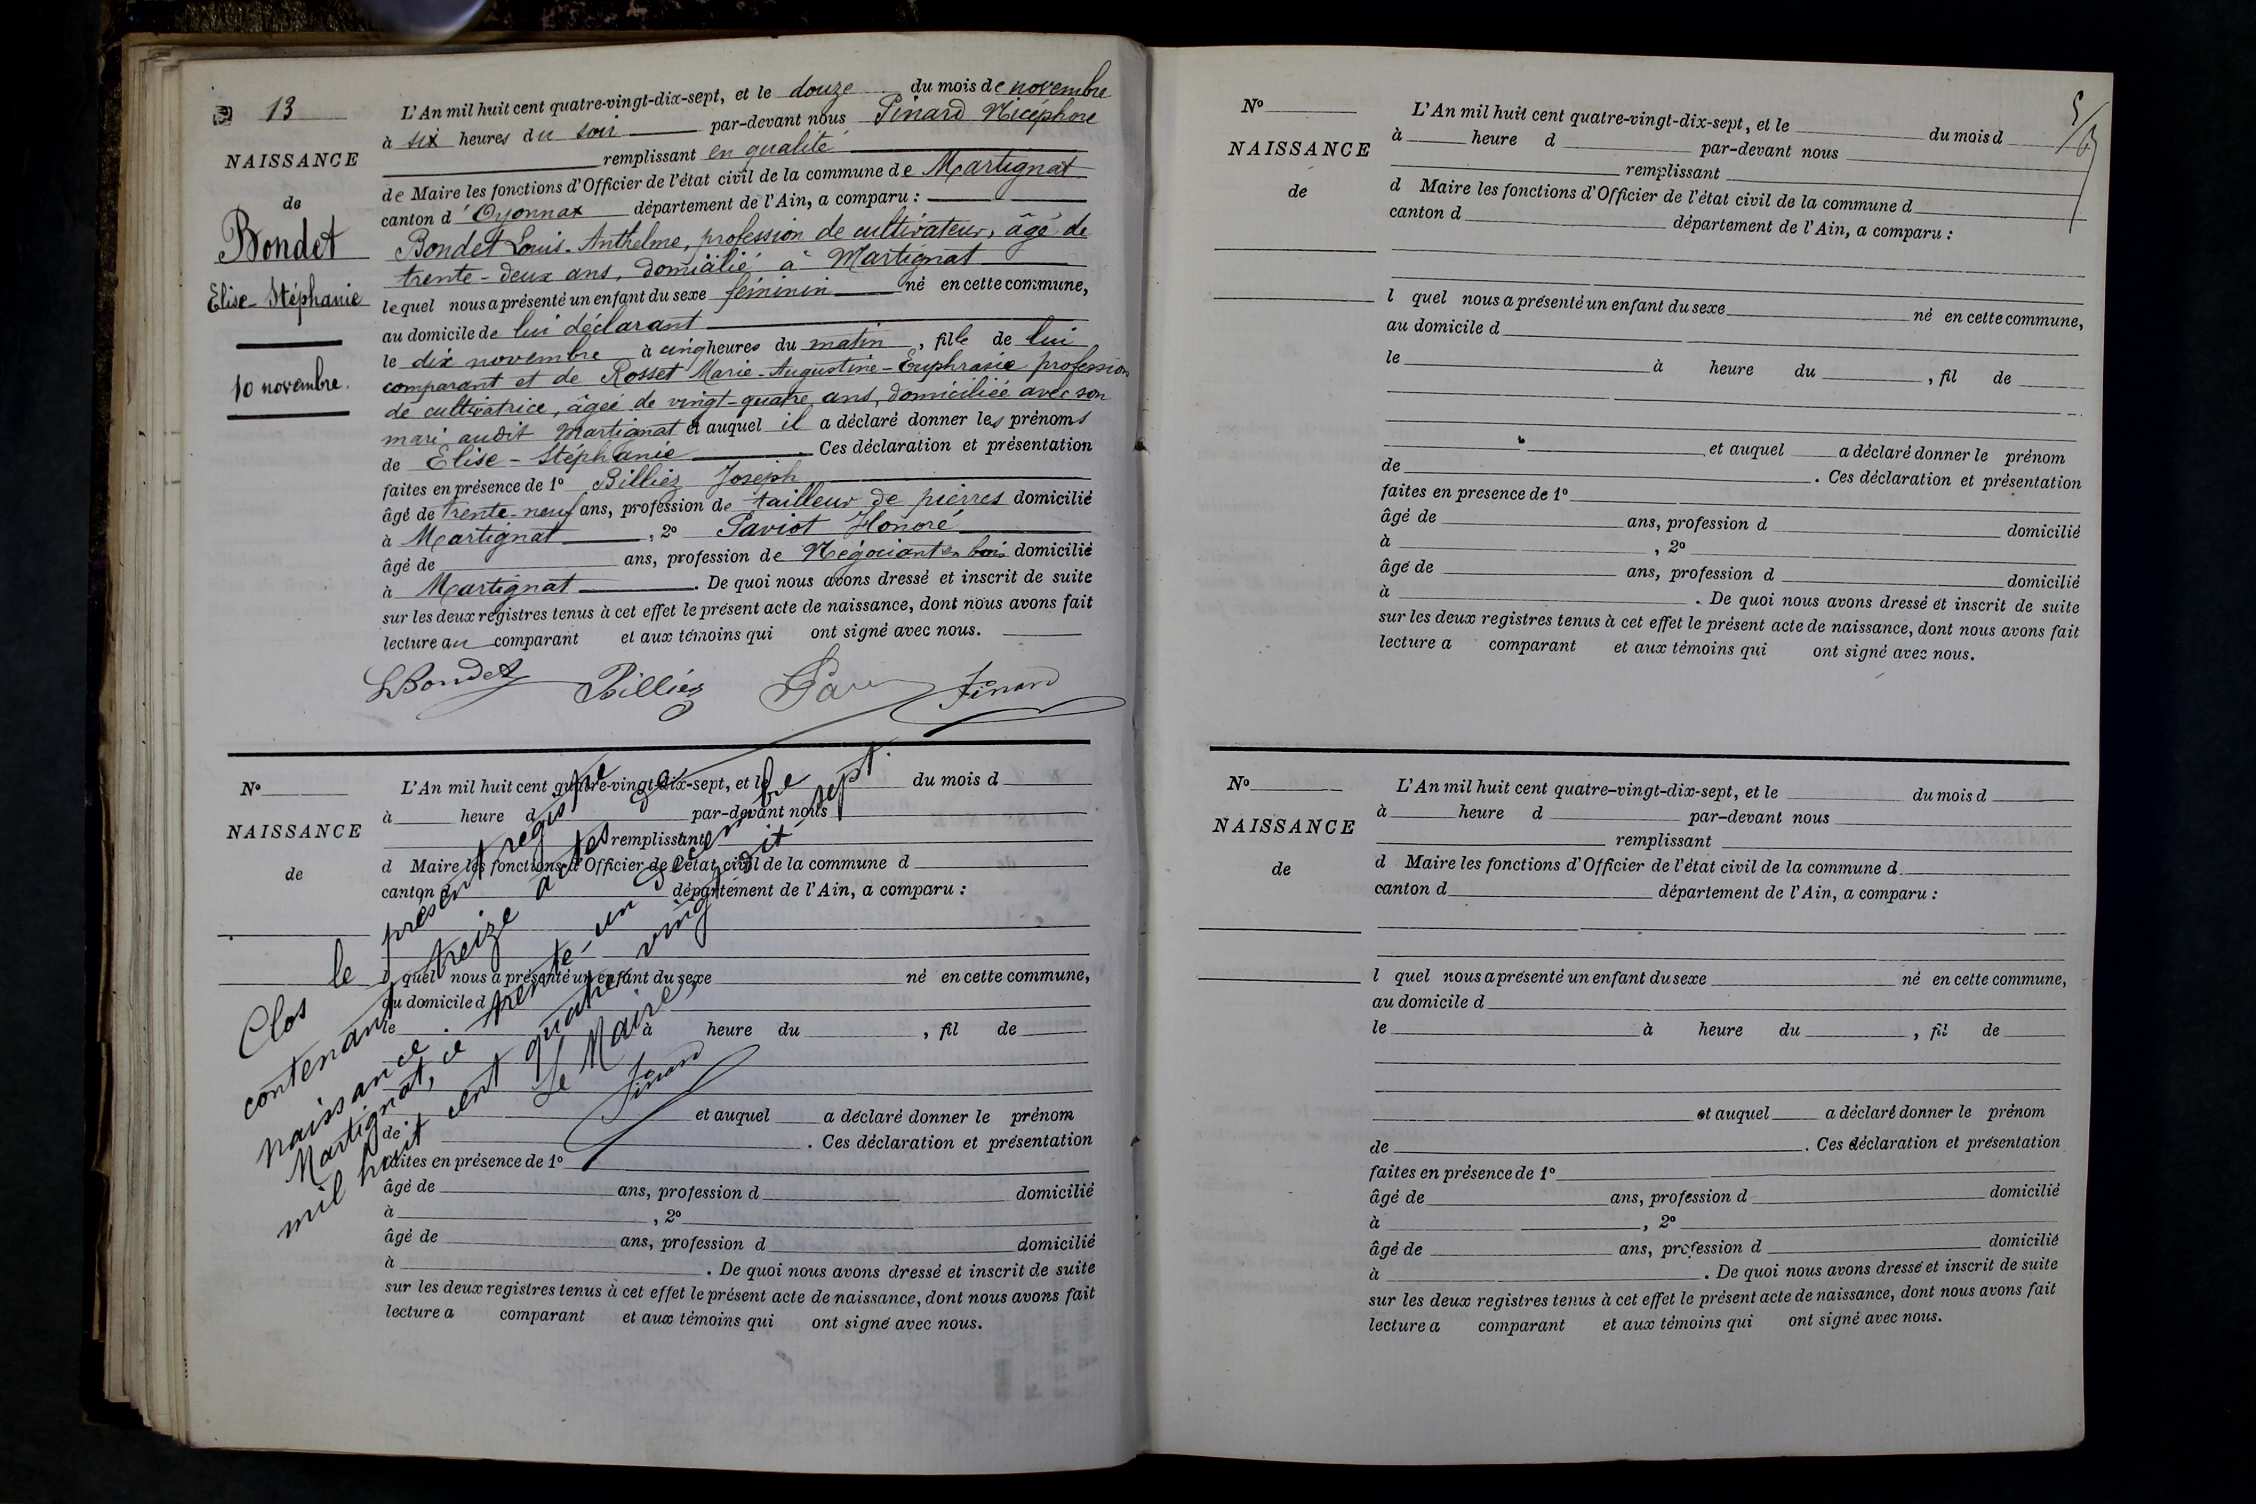 N° 13
NAISSANCE
de
Bondet
Elise-Stéphanie
10 novembre.
L'An mil huit cent quatre-vingt-dix-sept, et le douze du mois de novembre
à six heures du soir par-devant nous Pinard Nicéphore
remplissant en qualité
de Maire les fonctions d'Officier de l'état civil de la commune de Martignat
canton d'Oyonnax département de l'Ain, a comparu :
Bondet Louis-Anthelme, profession de cultivateur, âgé de
trente-deux ans, domicilié à Martignat
lequel nous a présenté un enfant du sexe féminin né en cette commune,
au domicile de lui déclarant
le dix novembre à cinq heures du matin, fille de lui
comparant et de Rosset Marie-Augustine-Euphrasie profession
de cultivatrice, âgée de vingt-quatre ans, domiciliée avec son
mari audit Martignat et auquel il a déclaré donner les prénoms
de Elise-Stéphanie Ces déclaration et présentation
faites en présence de 1° Billiez Joseph
âgé de trente-neuf ans, profession de tailleur de pierres domicilié
à Martignat, 2° Paviot Honoré
âgé de ans, profession de Négociant en bois domicilié
à Martignat. De quoi nous avons dressé et inscrit de suite
sur les deux registres tenus à cet effet le présent acte de naissance, dont nous avons fait
lecture au comparant et aux témoins qui ont signé avec nous.
LBondet Billiez Pinard
N°
NAISSANCE
de
L'An mil huit cent quatre-vingt-dix-sept, et le du mois d
à heure d par-devant nous
remplissant
d Maire les fonctions d'Officier de l'état civil de la commune d
canton d département de l'Ain, a comparu :
l quel nous a présenté un enfant du sexe né en cette commune,
au domicile d
le à heure du , fil de
et auquel a déclaré donner le prénom
de . Ces déclaration et présentation
faites en présence de 1°
âgé de ans, profession d domicilié
à , 2°
âgé de ans, profession d domicilié
à . De quoi nous avons dressé et inscrit de suite
sur les deux registres tenus à cet effet le présent acte de naissance, dont nous avons fait
lecture a comparant et aux témoins qui ont signé avec nous.
Clos le présent registre
contenant treize actes de
naissance.
Martignat, ce trente-un décembre
mil huit cent quatre-vingt-dix-sept.
Le Maire,
Pinard
N°
NAISSANCE
de
L'An mil huit cent quatre-vingt-dix-sept, et le du mois d
à heure d par-devant nous
remplissant
d Maire les fonctions d'Officier de l'état civil de la commune d
canton d département de l'Ain, a comparu :
l quel nous a présenté un enfant du sexe né en cette commune,
au domicile d
le à heure du , fil de
et auquel a déclaré donner le prénom
de . Ces déclaration et présentation
faites en presence de 1°
âgé de ans, profession d domicilié
à , 2°
âgé de ans, profession d domicilié
à . De quoi nous avons dressé et inscrit de suite
sur les deux registres tenus à cet effet le présent acte de naissance, dont nous avons fait
lecture a comparant et aux témoins qui ont signé avec nous.
N°
NAISSANCE
de
L'An mil huit cent quatre-vingt-dix-sept, et le du mois d
à heure d par-devant nous
remplissant
d Maire les fonctions d'Officier de l'état civil de la commune d
canton d département de l'Ain, a comparu :
l quel nous a présenté un enfant du sexe né en cette commune,
au domicile d
le à heure du , fil de
et auquel a déclaré donner le prénom
de . Ces déclaration et présentation
faites en présence de 1°
âgé de ans, profession d domicilié
à , 2°
âgé de ans, profession d domicilié
à . De quoi nous avons dressé et inscrit de suite
sur les deux registres tenus à cet effet le présent acte de naissance, dont nous avons fait
lecture a comparant et aux témoins qui ont signé avec nous.